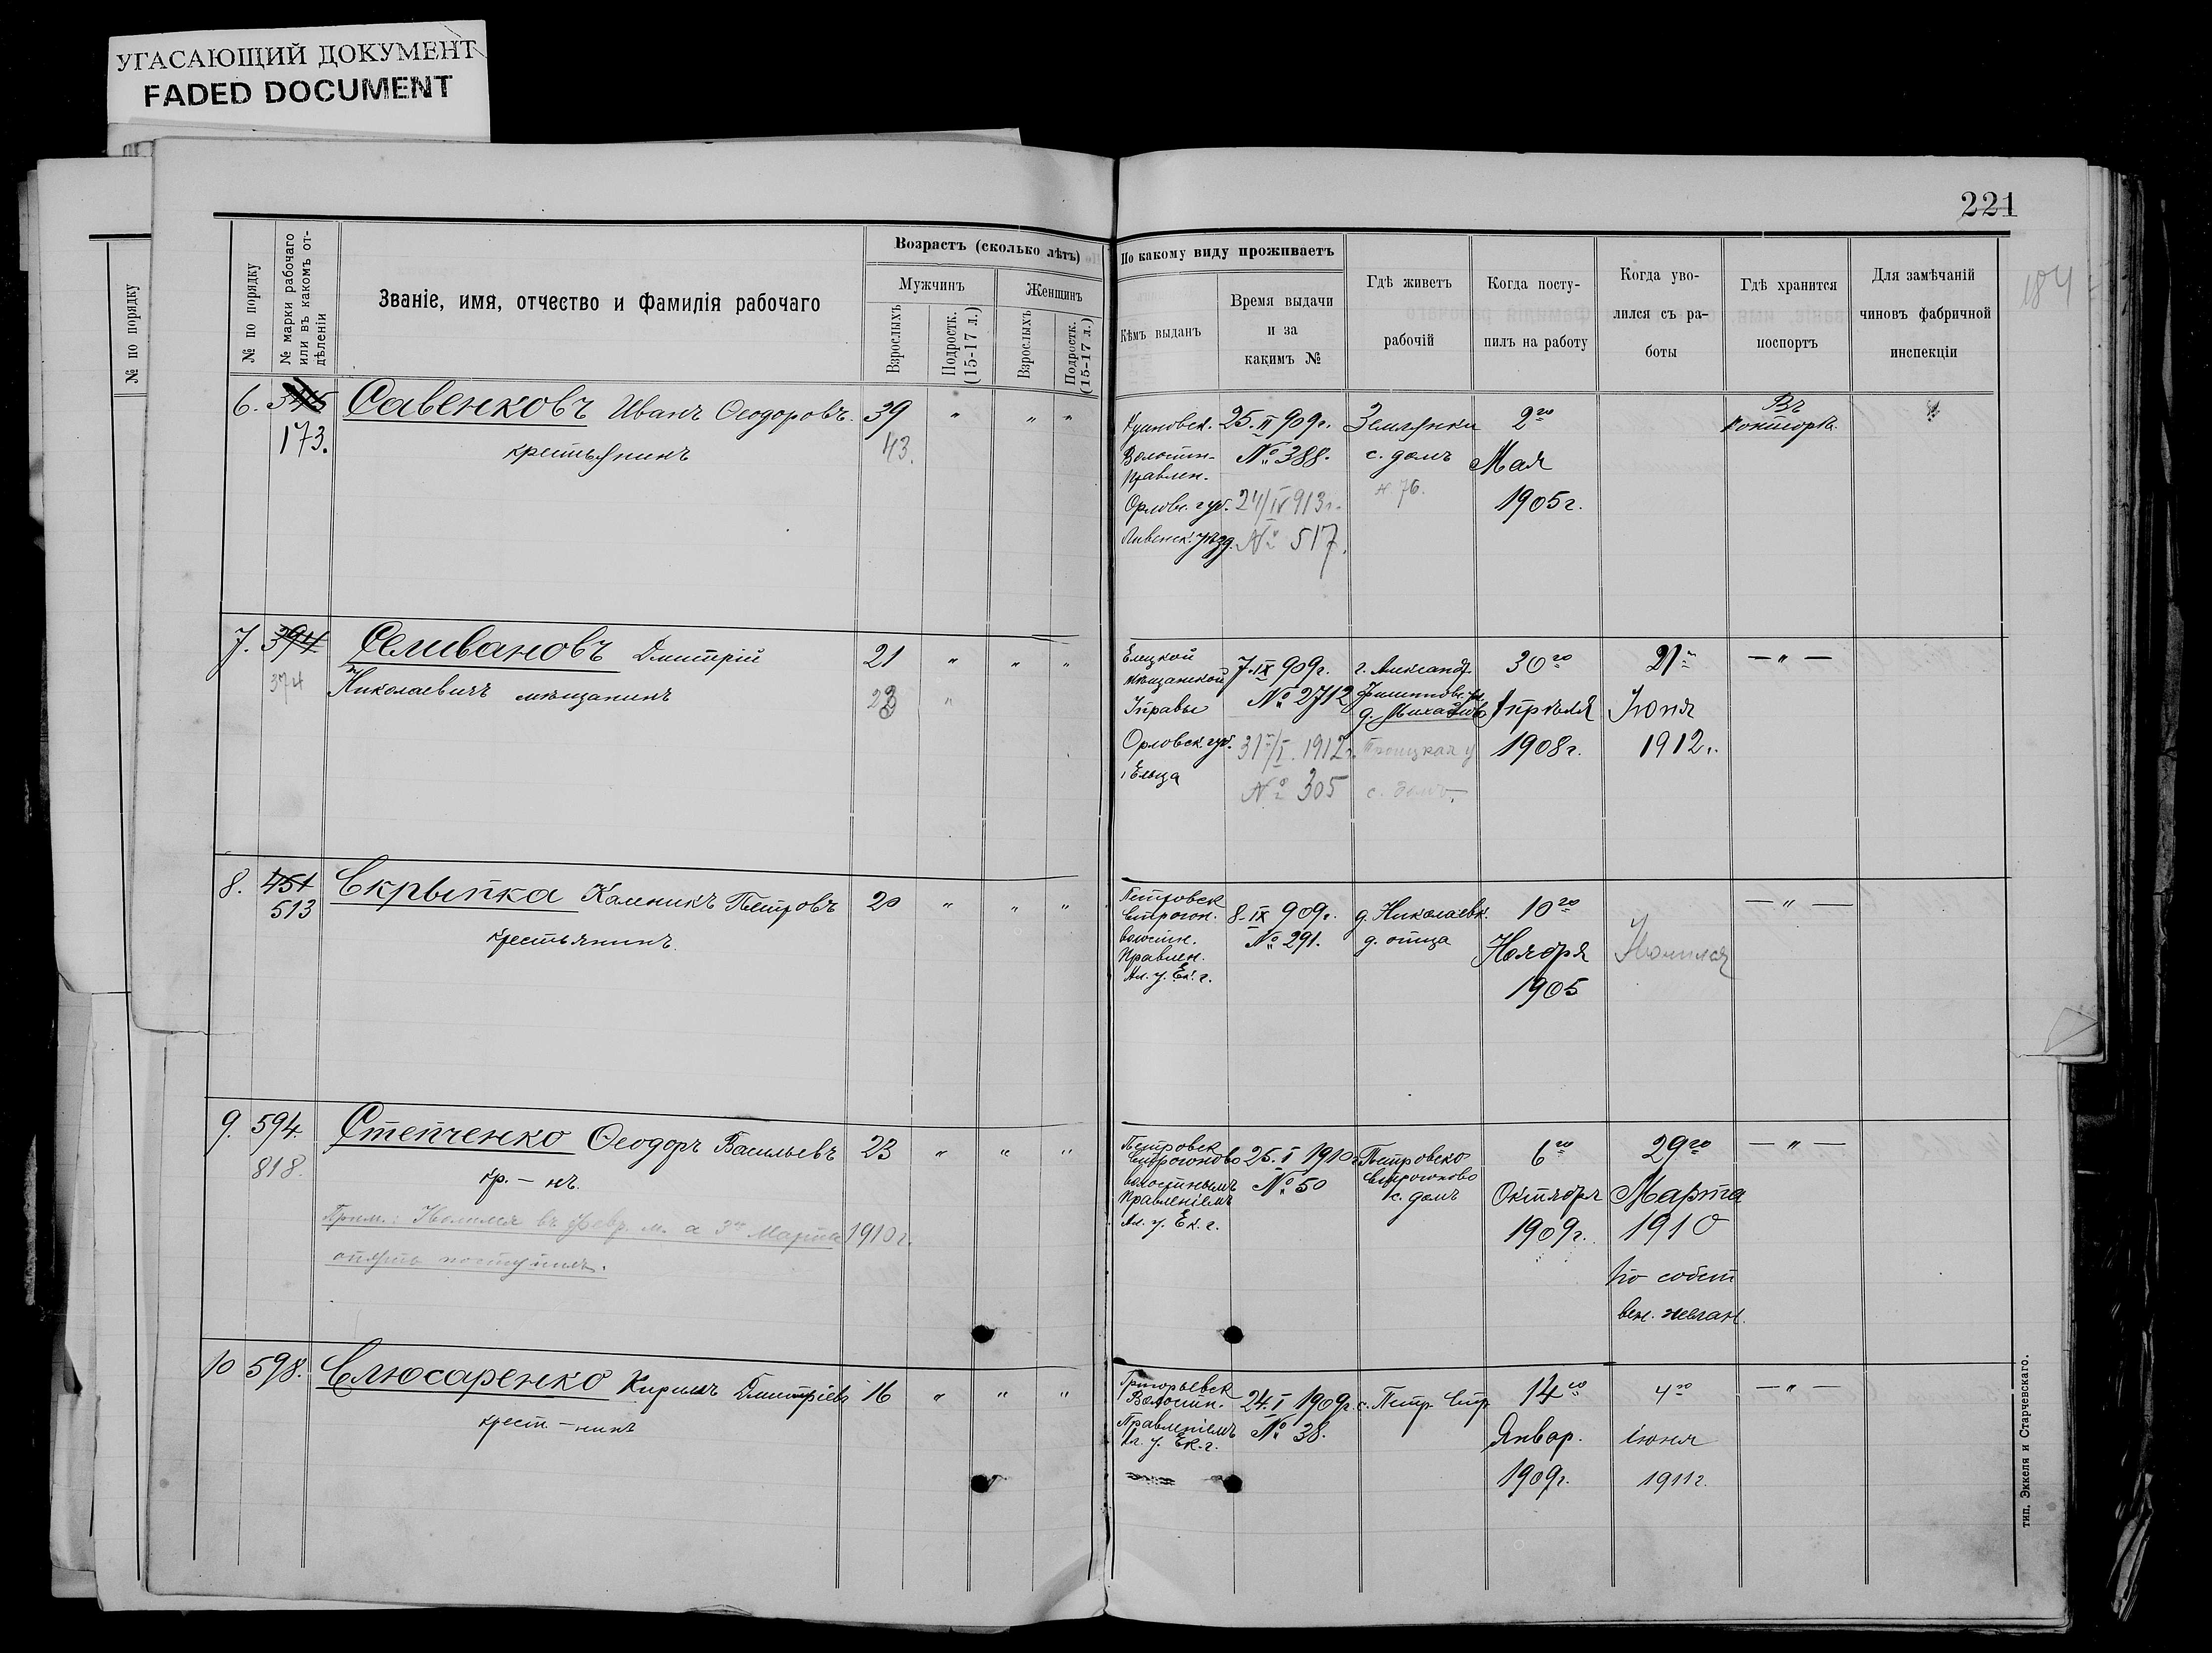 УГАСАЮЩИЙ ДОКУМЕНТ
FADED DOCUMENT
221
184
№ по порядку
№ по порядку
№ марки рабочаго или въ какомъ отдѣленіи
Званіе, имя, отчество и фамилія рабочаго
Возрастъ (сколько лѣтъ)
Мужчинъ
Женщинъ
Взрослыхъ
Подростк. (15-17 л.)
Взрослыхъ
Подростк. (15-17 л.)
По какому виду проживаетъ
Кѣмъ выданъ
Время выдачи
и за
какимъ №
Гдѣ живетъ
рабочій
Когда посту-
пилъ на работу
Когда уво-
лился съ ра-
боты
Гдѣ хранится
поспортъ
Для замѣчаній
чиновъ фабричной
инспекціи
6. 173. Савенковъ Иванъ Ѳеодоровъ. 39 " " "
крестьянинъ 43.
Волостн.
Правлен.
Орловс. губ.
Ливенск. уѣзд.
25.II 909г.
№ 388.
24/IV 913г.
№ 517.
Землянки
с. домъ
н. 76.
2го
Мая
1905г.
Въ
конторѣ.
7. 394 Селивановъ Дмитрій 21 " " "
374 Николаевичъ мѣщанинъ "
Елецкой
мѣщанской
Управы
Орловск. губ.
г. Ельца
7.IX 909г.
№ 2712
31/I.1912г.
№ 305
г. Александр.
д. Михайлов
Троицкая у
с. домъ.
30го
Апрѣля
1908г.
21го
Іюня
1912г.
— " —
8. 451 Скрыпка Калникъ Петровъ 20 " " "
513 крестьянинъ.
Петровск
Строгон.
волостн.
Правлен.
Ал. у. Ек. г.
8.IX 909г.
№ 291.
д. Николаевк.
д. отца
10го
Ноября
1905
Уволился
— " —
9. 594. Степченко Ѳеодоръ Васильевъ 23 " " "
818. кр. – нъ.
Прим.: Уволился въ февр. м. а 3го Марта 1910г.
опять поступилъ.
Петровск
Строгоново
волостнымъ
Правленіемъ
Ал. у. Ек. г.
25.I 1910г.
№ 50
Петровско
Строгоново
с. домъ
6го
Октября
1909г.
29го
Марта
1910
По собст
вен. желан.
— " —
10 598. Слюсаренко Кирилъ Дмитріевъ 16 " " "
крест – нинъ
Григорьевск
Волостн.
Правленіемъ
Ал. у. Ек. г.
24.I 1909г.
№ 38.
с. Петр. Стр
14го
Январ.
1909г.
4го
іюня
1911г.
— " —
тип. Эккеля и Старчевскаго.